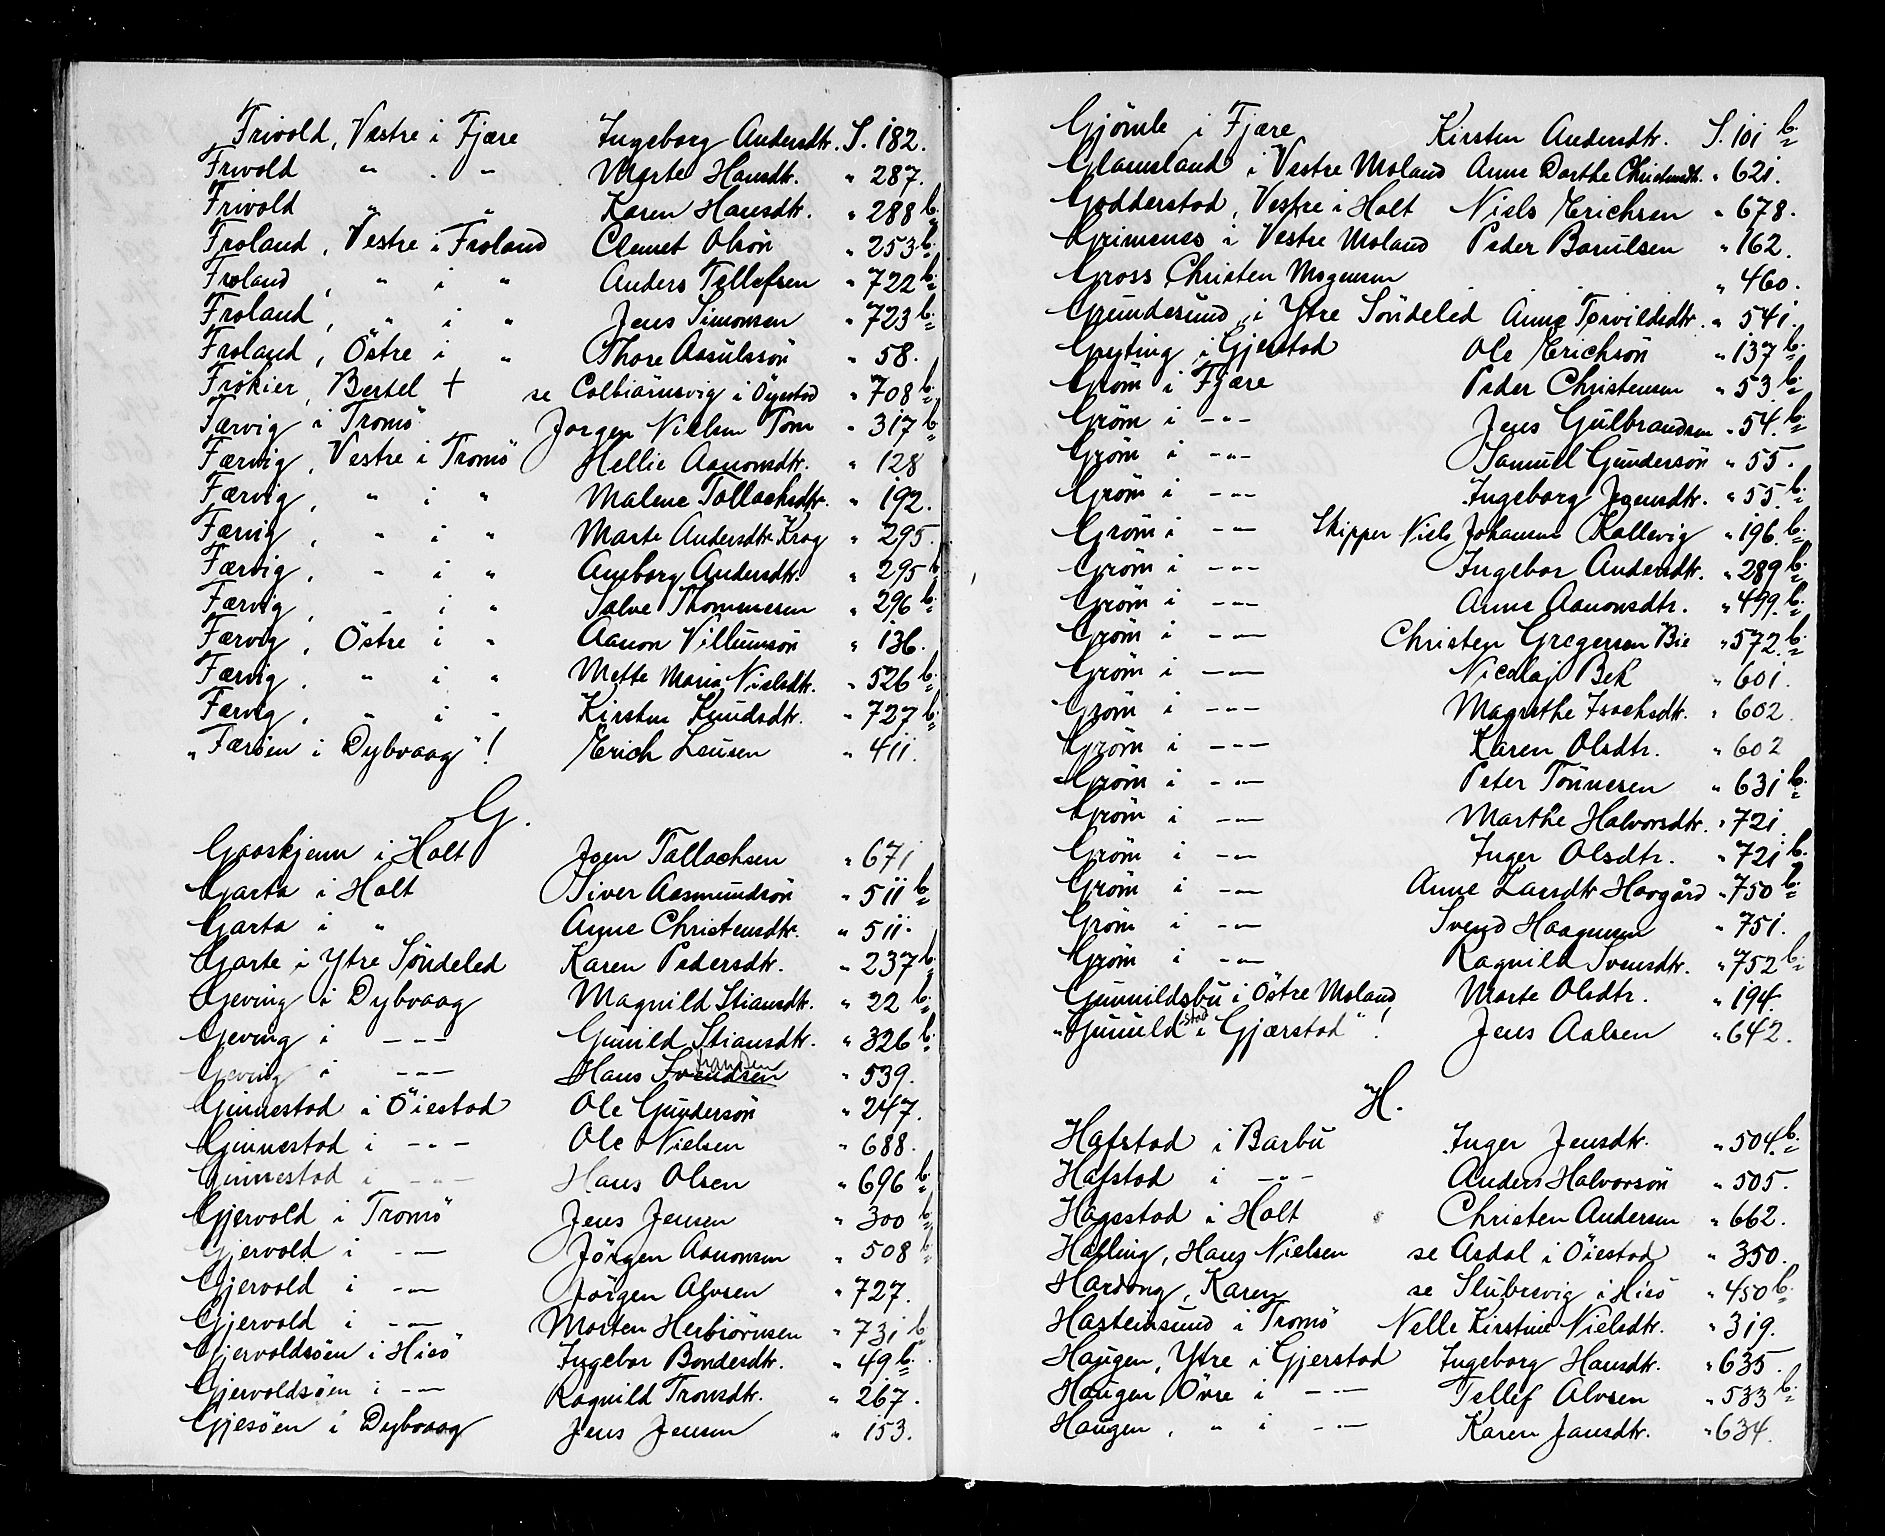 Frivold, Vestre i Fjære Ingeborg Andersdtr. S. 182.
Frivold " . " Marte Hansdtr. " 287.
Frivold " " Karen Hansdtr. " 288 b.
Froland, Vestre i Froland Clemet Olsön " 253 b.
Froland, " i " Anders Tellefsen " 722 b.
Froland, " i " Jens Simonsen " 723 b.
Froland, Östre i " Thore Aasulssön " 58.
Frökier, Bertel + se Colbiörnsvig i Öyestad " 708 b.
Færvig i Tromö Jorgen Nielsen Tom " 317 b.
Færvig, Vestre i Tromö Hellie Aanonsdtr. " 128
Færvig, " i " Malene Tallachsdtr. " 192.
Færvig, " i " Marte Andersdtr. Krog " 295.
Færvig, " i " Amborg Andersdtr. " 295 b.
Færvig, " i " Salve Thommesen " 296 b.
Færvig, Östre i " Aanon Villumsön " 136.
Færvig, " i " Mette Maria Nielsdtr. " 526 b.
Færvig, " i " Kirsten Knudsdtr. " 727 b.
"Færöen i Dybvaag"! Erich Lausen " 411.
G.
Gaaskjenn i Holt Joen Tallachsen " 671
Garta i Holt Siver Aasmundsön " 511 b.
Garta i " Anne Christensdtr. " 511.
Garte i Ytre Söndeled Karen Pedersdtr. " 237 b.
Geving i Dybvaag Magnild Stiansdtr. " 22 b.
Geving i --- Gunild Stiansdtr. " 326 b.
Geving i --- Hans Svendsen " 539.
Ginnestad i Öiestad Ole Gundersön " 247.
Ginnestad i --- Ole Nielsen " 688.
Ginnestad i --- Hans Olsen " 696 b.
Gjervold i Tromö Jens Jensen " 300 b.
Gjervold i -- Jörgen Aanonsen " 508 b.
Gjervold i -- Jörgen Alvsen " 727.
Gjervold i -- Morten Herbiörnsen " 731 b.
Gjervoldsöen i Hisö Ingebor Bondesdtr. " 49 b.
Gjervoldsöen i -- Ragnild Tronsdtr. " 267.
Gjesöen i Dybvaag Jens Jensen " 153.
Gjömle i Fjære Kirsten Andersdtr. S. 101 b.
Glamsland i Vestre Moland Anne Dorthe Christensdtr. " 621.
Godderstad, Vestre i Holt Niels Erichsen " 678.
Grimenes i Vestre Moland Peder Barulsen " 162.
Gross Christen Mogensen " 460.
Grundesund, i Ytre Söndeled Anne Torvildsdtr. " 541.
Gryting i Gjerstad Ole Erichsön " 137 b.
Gröm i Fjære Peder Christensen " 53 b.
Gröm i --- Jens Gulbrandsen " 54. b.
Gröm i --- Samuel Gundersön " 55.
Gröm i --- Ingeborg Joensdtr. " 55. b.
Gröm i -- Skipper Niels Johansen Kallevig " 196. b.
Gröm i --- Ingebor Andersdtr. " 289 b.
Gröm i --- Anne Aanonsdtr. " 499. b.
Gröm i --- Christen Gregersen Bie " 572. b.
Gröm i --- Nicolaj Bek " 601.
Gröm i --- Magrethe Isachsdtr. " 602.
Gröm i --- Karen Olsdtr. " 602
Gröm i --- Peter Tönnesen " 631 b.
Gröm i -- Marthe Halvorsdtr. " 721.
Gröm i -- Inger Olsdtr. " 721 b.
Gröm i -- Anne Larsdtr. Havgård " 750 b.
Gröm i -- Svend Haagensen " 751.
Gröm i -- Ragnild Svensdtr. " 752 b.
Gunnildsbu i Östre Moland Marte Olsdtr. " 194.
"Gunuldstad i Gjærstad"! Jens Aalsen " 642.
H.
Hafstad i Barbu Inger Jensdtr. " 504. b.
Hafstad i --- Anders Halvorsön " 505.
Hagestad i Holt Christen Andersen " 662.
Halling, Hans Nielsen se Asdal i Öiestad " 350.
Hardong, Karen se Slubrevig i Hisö " 450 b.
Hasteinsund i Tromö Nelle Kirstine Nielsdtr. " 319.
Haugen, Ytre i Gjerstad Ingeborg Hansdtr. " 635.
Haugen Övre i --- Tellef Alvsen " 533 b.
Haugen, " i --- Karen Jansdtr. " 634.